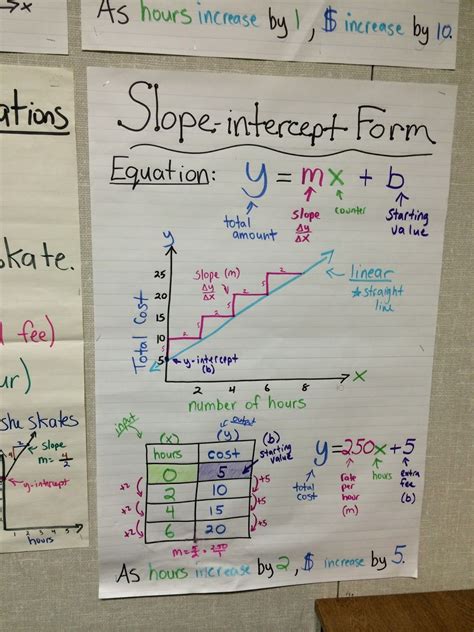 →x
As hours increase by 1, $ increase by 10.
ations
skate.
d fee)
ur)
she skates
slope
m=
y-intercept
1 2 3 4 5
hours
Slope-intercept Form
Equation: y = mx + b
total amount
slope Δy/Δx
counter
starting value
y
Total Cost
25
20
15
10
5
slope (m) Δy/Δx
2 2 2 2
5 5 5 5
linear
straight line
y-intercept (b)
x
2 4 6 8
number of hours
input
output
(x) (y)
hours cost
0 5
2 10
4 15
6 20
(b) starting value
+5
+5
+5
y=2.50x+5
total cost
rate per hour (m)
hours
extra fee (b)
As hours increase by 2, $ increase by 5.